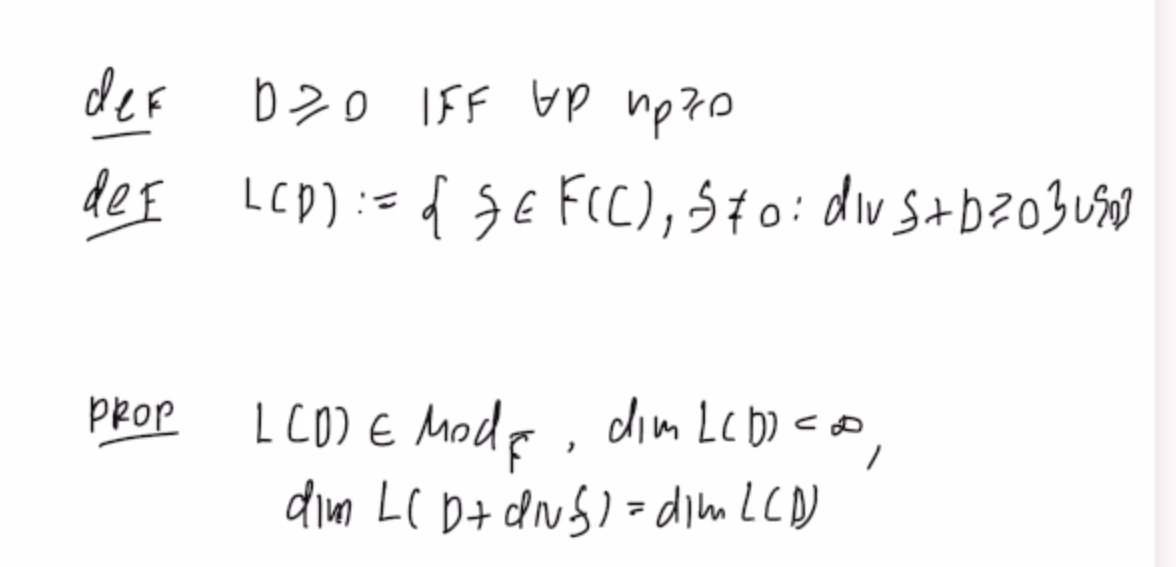 def D ≥ 0 IFF ∀P n_P ≥ 0
def L(D) := { f ∈ F(C), f ≠ 0 : div f + D ≥ 0 } ∪ {0}
PROP L(D) ∈ Mod_F , dim L(D) < ∞,
dim L( D + div f ) = dim L(D)